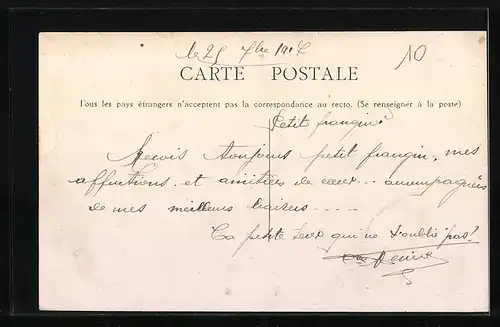 le 25 7bre 190
10
CARTE POSTALE
Tous les pays étrangers n'acceptent pas la correspondance au recto. (Se renseigner à la poste)
Petit frangin!
Recois toujours petit frangin, mes
affections et amitiées de cœur.. accompagnées
de mes meilleurs baisers ----
Ta petite qui ne t'oublie pas!